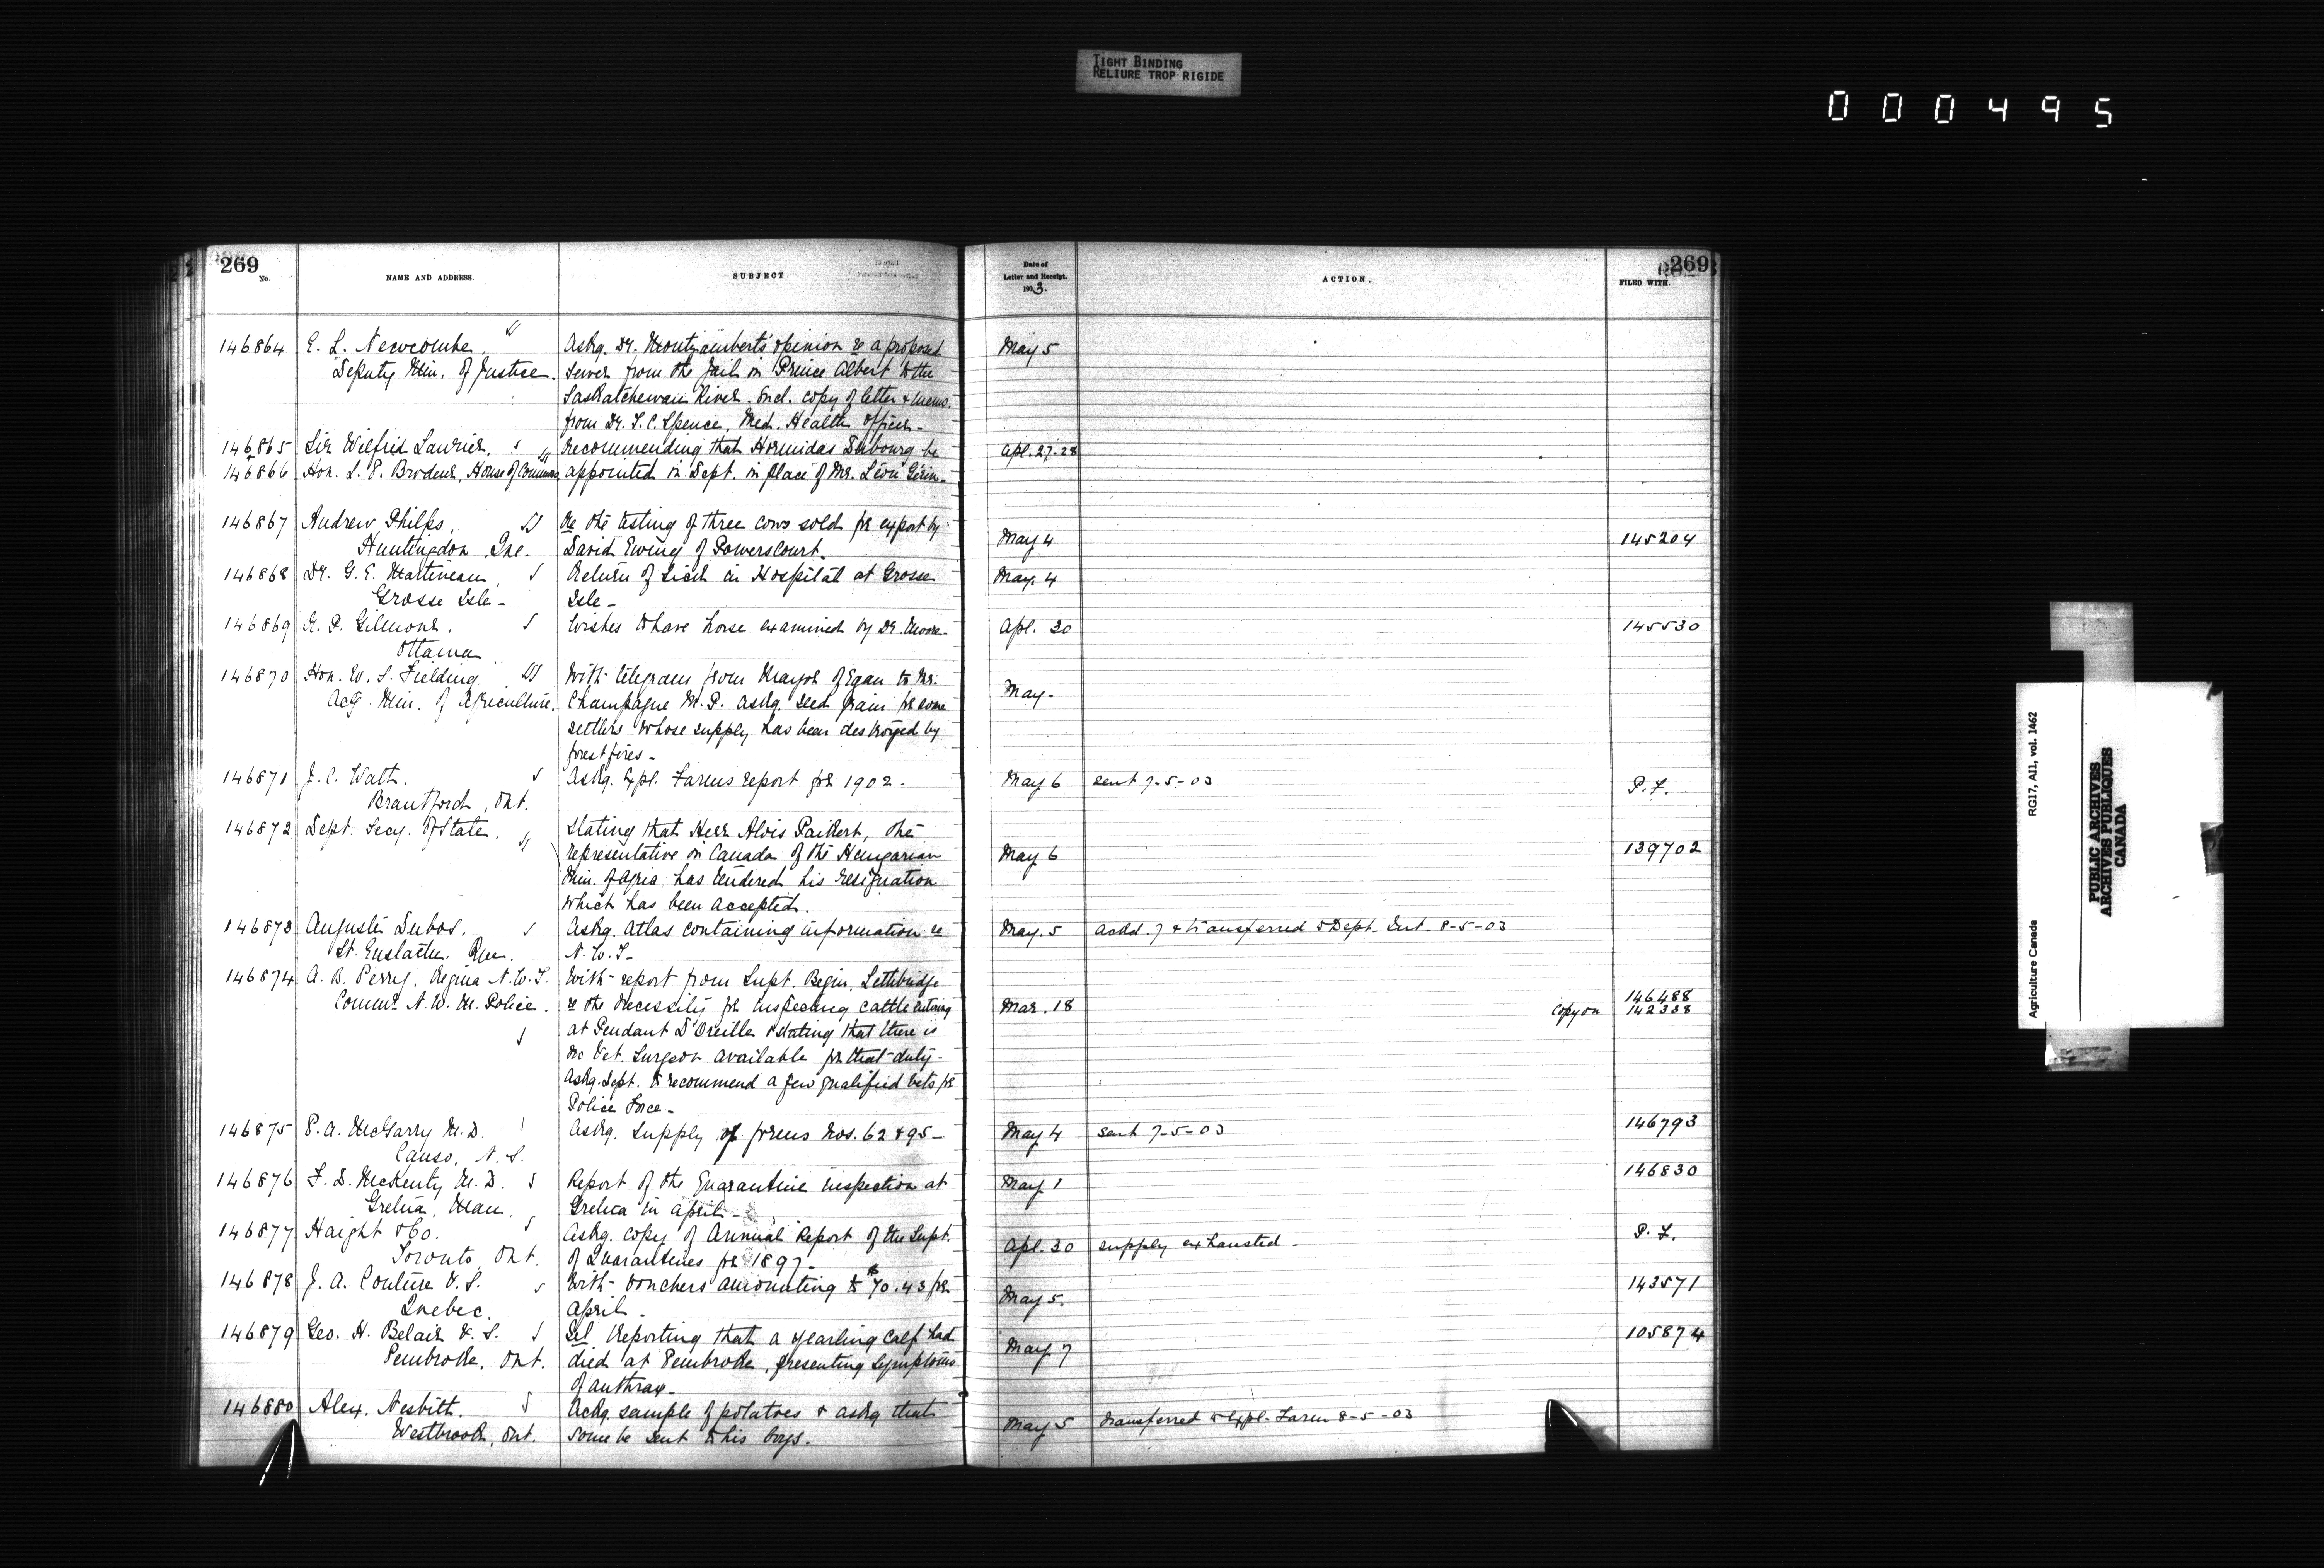 TIGHT BINDING
RELIURE TROP RIGIDE
000495
269
No.
NAME AND ADDRESS.
SUBJECT.
Date of
Letter and Receipt.
1903.
ACTION.
269
FILED WITH.
146864 E. L. Newcombe, Askg. Dr. Montizambert's opinion re a proposed May 5
Deputy Min. of Justice. sewer from the Jail in Prince Albert to the
Saskatchewan River. Encl. copy of letter & memo.
from Dr. T. C. Spence, Med. Health Officer.
146865 Sir Wilfrid Laurier, recommending that Hormidas Dubourg be Apl. 27-28
146866 Hon. L. P. Brodeur, House of Commons, appointed in Dept. in place of Mr. Léon Gérin.
146867 Andrew Philps, Re the testing of three cows sold for export by
Huntingdon, Que. David Ewing of Powerscourt. May 4 145204
146868 Dr. G. E. Martineau, Return of sick in Hospital at Grosse May. 4
Grosse Isle - Isle -
146869 Gilmour. Wishes to have horse examined by Dr. Moore. Apl. 30 145530
Ottawa
146870 Hon. W. S. Fielding, With telegram from Mayor of Egan to Mr. May.
Actg. Min. of Agriculture. Champagne M.P. askg. seed grain for some
settlers whose supply has been destroyed by
forest fires -
146871 J. C. Watt. Askg. Expl. Farms report for 1902. May 6 sent 7-5-03 P. F.
Brantford, Ont.
146872 Dept. Secy. of State. Stating that Herr Alois Paikert, the
representative in Canada of the Hungarian May 6 139702
Min. of Agric. has tendered his resignation
which has been accepted.
146873 Auguste Dubos. Askg. Atlas containing information re May. 5 ackd. 7 & transferred to Dept. Int. 8-5-03
St. Eustache. Que. N. W. T.
146874 A. B. Perry, Regina N.W.T. With report from Supt. Begin, Lethbridge
Commr. N. W. M. Police. re the necessity for inspecting cattle entering Mar. 18 146488
copy on 142338
at Pendant D'Oreille & stating that there is
no Vet. Surgeon available for that duty.
Askg. Dept. to recommend a few qualified Vets for
Police Force -
146875 P. A. McGarry M.D. Askg. supply of forms Nos. 62 & 95 - May 4 sent 7-5-03 146793
Canso, N. S.
146876 F. D. McKenty M. D. Report of the Quarantine inspection at May 1 146830
Gretna, Man. Gretna in April -
146877 Haight & Co. Askg. copy of Annual Report of the Supt. Apl. 30 supply exhausted - P. F.
Toronto, Ont. of Quarantines for 1897 -
146878 J. A. Couture V. S. With vouchers amounting to $70.43 for May 5. 143571
Quebec. April -
146879 Geo. H. Belair V. S. Tel Reporting that a yearling calf had May 7 105874
Pembroke, Ont. died at Pembroke, presenting symptoms
of anthrax -
146880 Alex. Nesbitt. Ackg. sample of potatoes & askg that May 5 transferred to Expl. Farm 8-5-03
Westbrook, Ont. some be sent to his boys.
Agriculture Canada RG17, AII, vol. 1462
PUBLIC ARCHIVES
ARCHIVES PUBLIQUES
CANADA